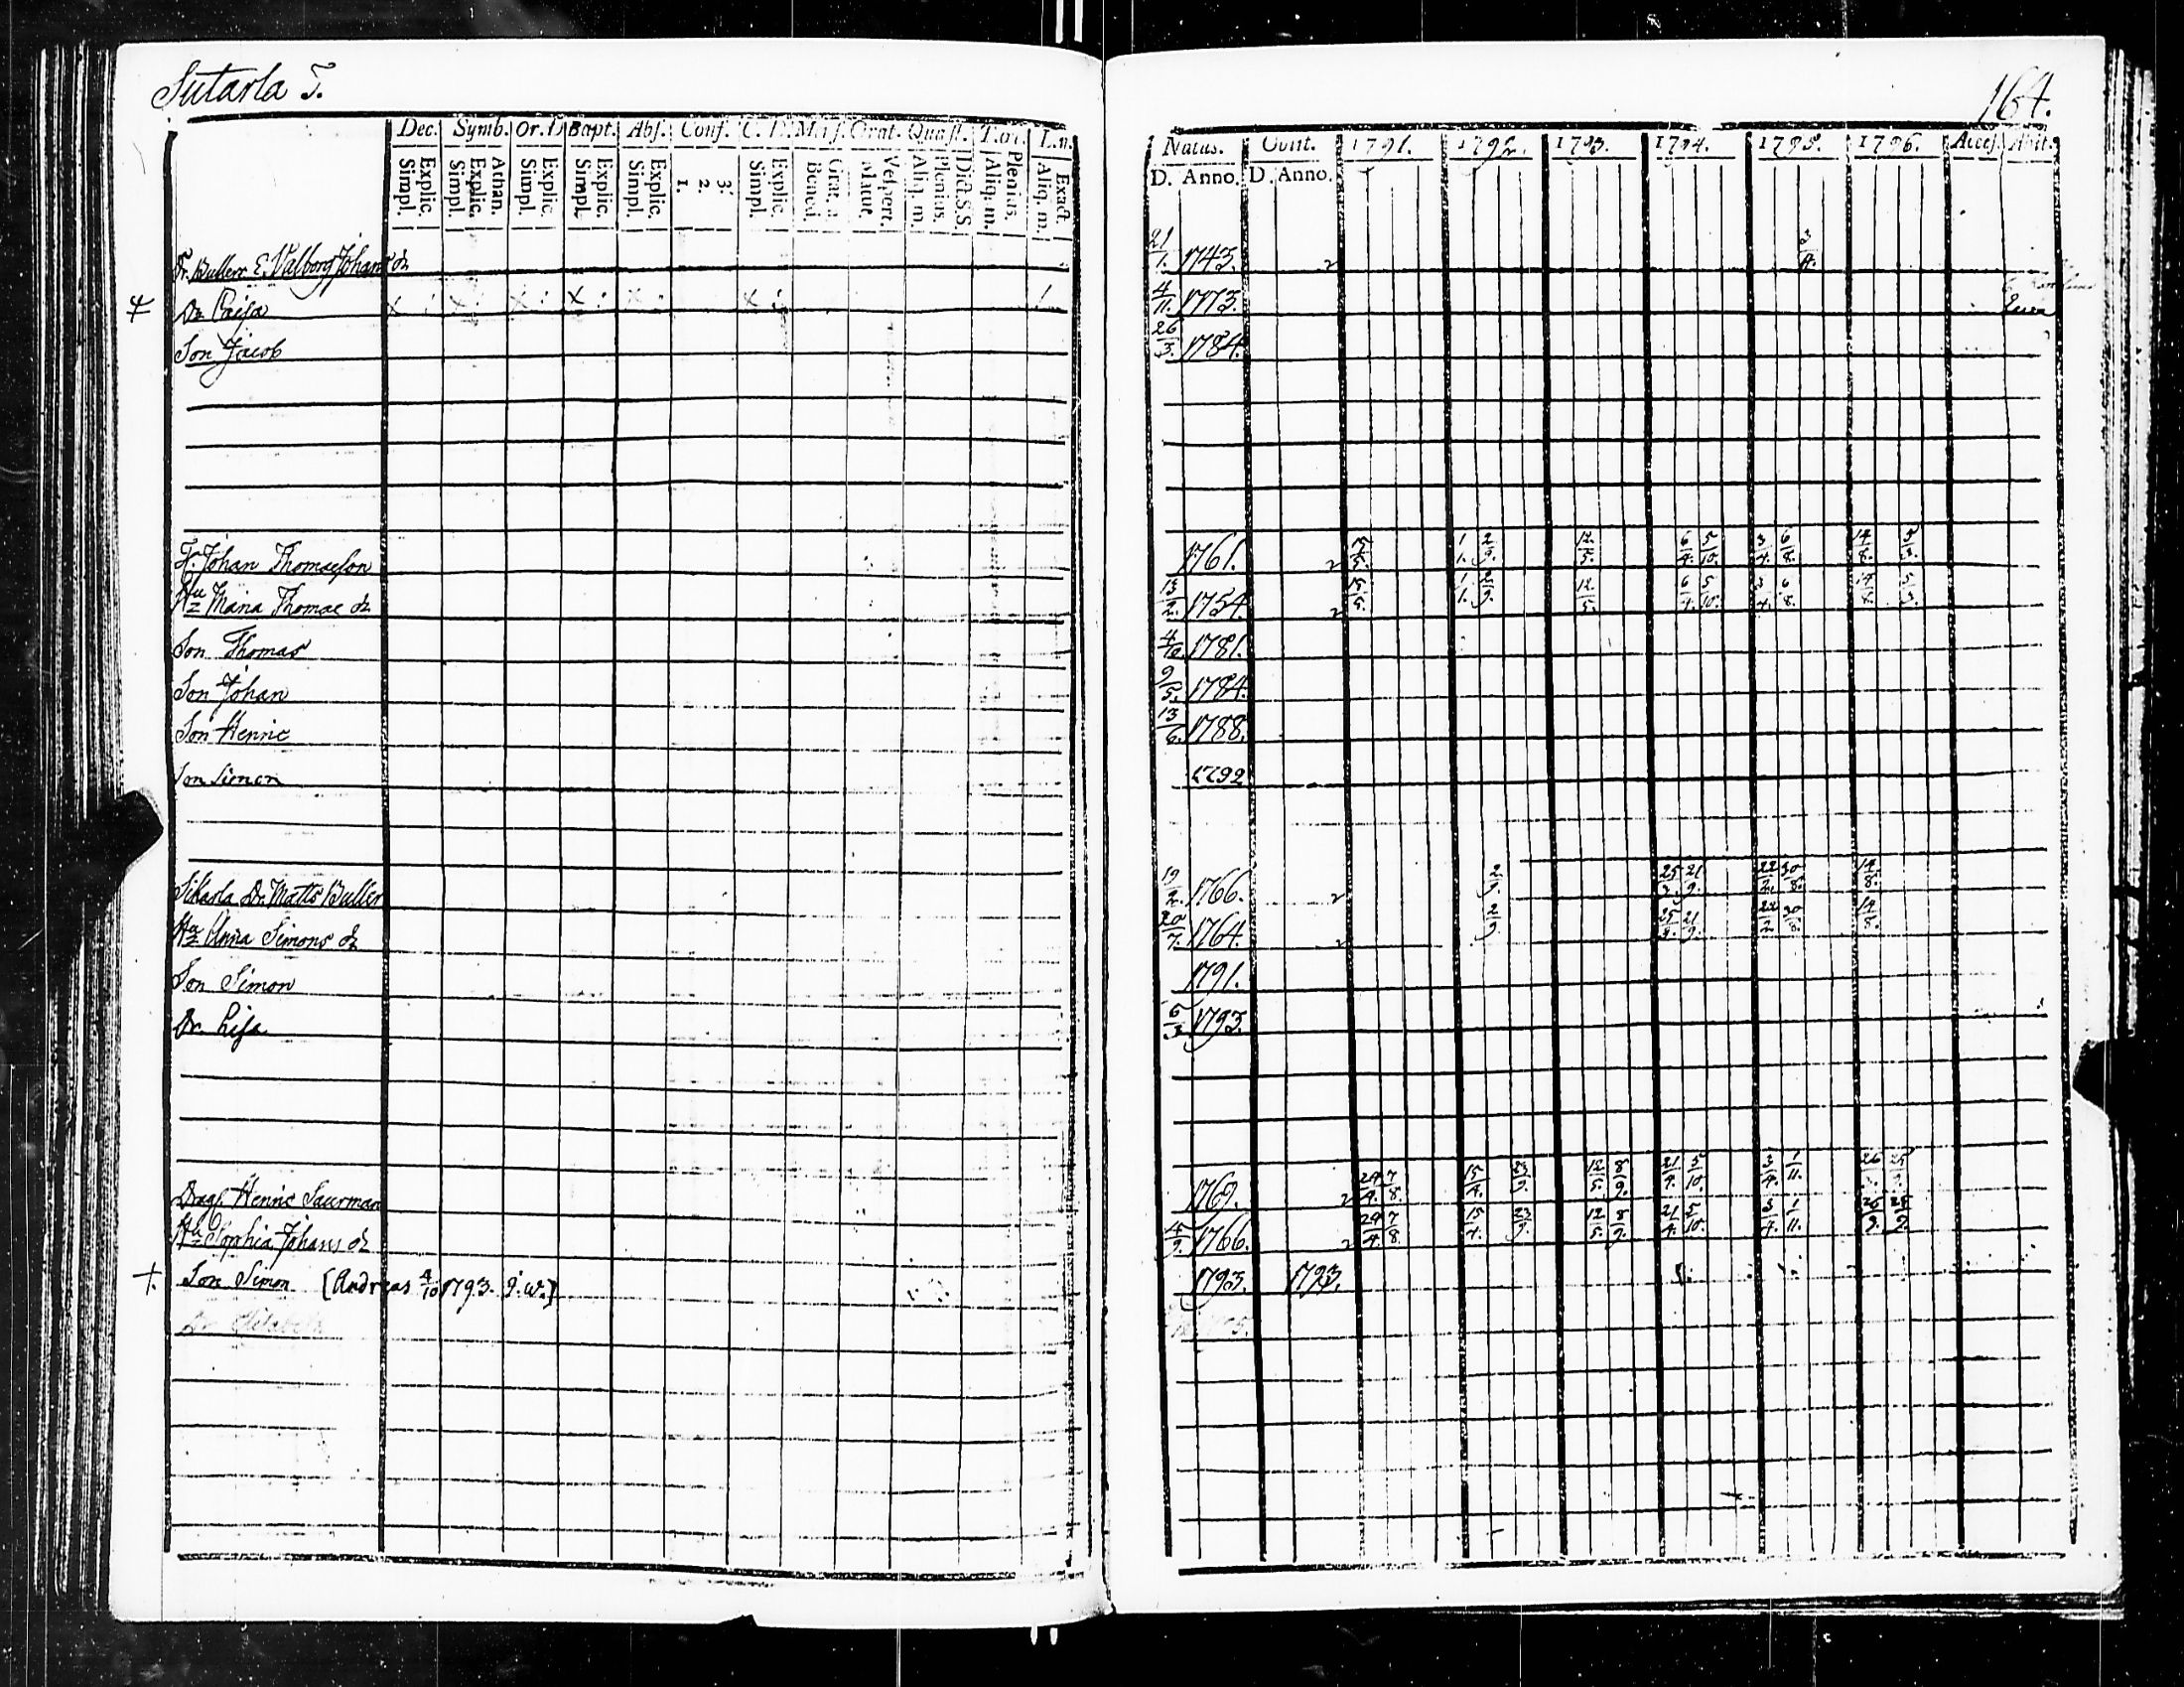 Sutarla T.
164.
Dec. Symb. Or. D Bapt. Abs. Conf. C. D. Mens. Orat. Quæst. T.œc. L.n.
Simpl. Explic. Simpl. Explic. Athan. Simpl. Explic. Simpl. Explic. Simpl. Explic. 1. 2. 3. Simpl. Explic. Bened. Grat. a. Matut. Vespert. Aliq. m. Plenius. Dict. S.S. Aliq. m. Plenius. Aliq. m. Exact.
Natus. Obiit. 1791. 1792. 1793. 1794. 1795. 1796. Access. Abit.
D. Anno. D. Anno.
Fr. Buller E. Valborg Johans dr 21/1. 1743. 3/4.
Dr Caisa x x x x x x 4/11. 1773.
Son Jacob 26/3. 1784.
F. Johan Thomasson 1761. 15/5. 1/1. 2/9. 12/5. 6/4. 5/10. 3/4. 6/8. 14/8. 5/3.
Hu Maria Thomae dr 13/2. 1754. 15/5. 1/1. 2/9. 12/5. 6/4. 5/10. 3/4. 6/8. 14/8. 5/3.
Son Thomas 4/10 1781.
Son Johan 9/5. 1784.
Son Henric 13/6. 1788.
Son Simon 1792
Sikarla Dr. Matts Buller 19/2. 1766. 2/9. 25/3. 21/9. 22/2. 30/8. 14/8.
Hu Anna Simons dr 20/7. 1764. 2/9. 25/3. 21/9. 22/2. 30/8. 14/8.
Son Simon 1791.
Dr. Lisa 6/3 1793.
Drag. Henric Saurman 1769. 29/4. 7/8. 15/4. 23/9. 12/5. 8/9. 21/4. 5/10. 3/4. 1/11.
Hu Sophia Johans dr 4/9. 1766. 29/4. 7/8. 15/4. 23/9. 12/5. 8/9. 21/4. 5/10. 3/4. 1/11.
†. Son Simon [Andreas 4/10 1793. J. W.] 1793. 1793.